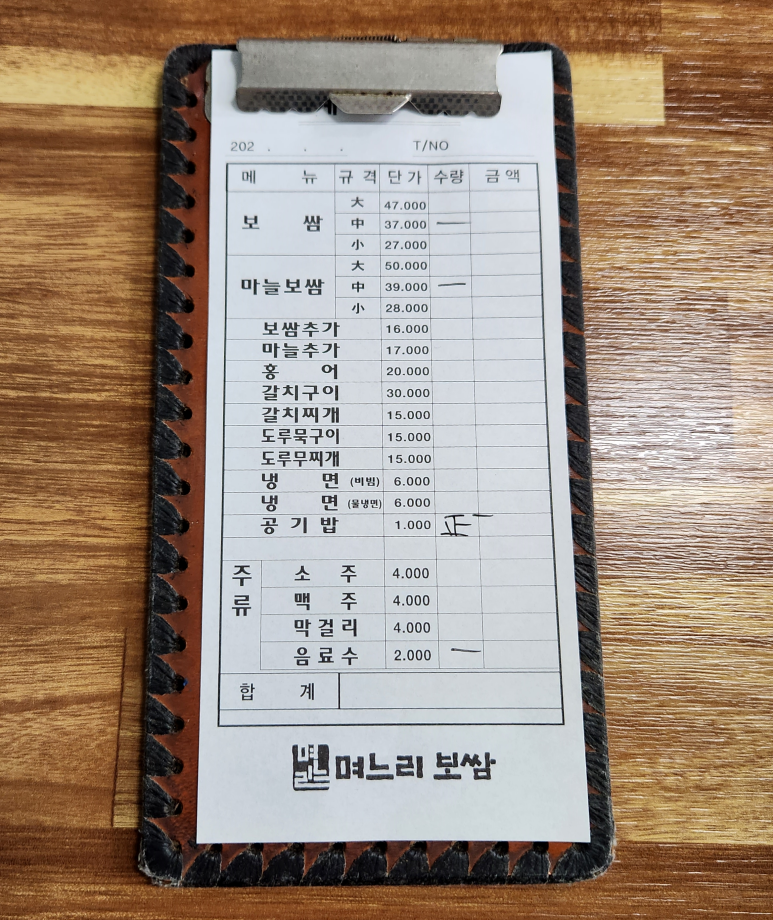 202 . . . T/NO
메 뉴 규 격 단 가 수량 금 액
보 쌈 大 47.000
中 37.000 一
小 27.000
마늘보쌈 大 50.000
中 39.000 一
小 28.000
보쌈추가 16.000
마늘추가 17.000
홍 어 20.000
갈치구이 30.000
갈치찌개 15.000
도루묵구이 15.000
도루무찌개 15.000
냉 면 (비빔) 6.000
냉 면 (물냉면) 6.000
공 기 밥 1.000 正一
주류 소 주 4.000
맥 주 4.000
막걸리 4.000
음료수 2.000 一
합 계
며느리 며느리 보쌈